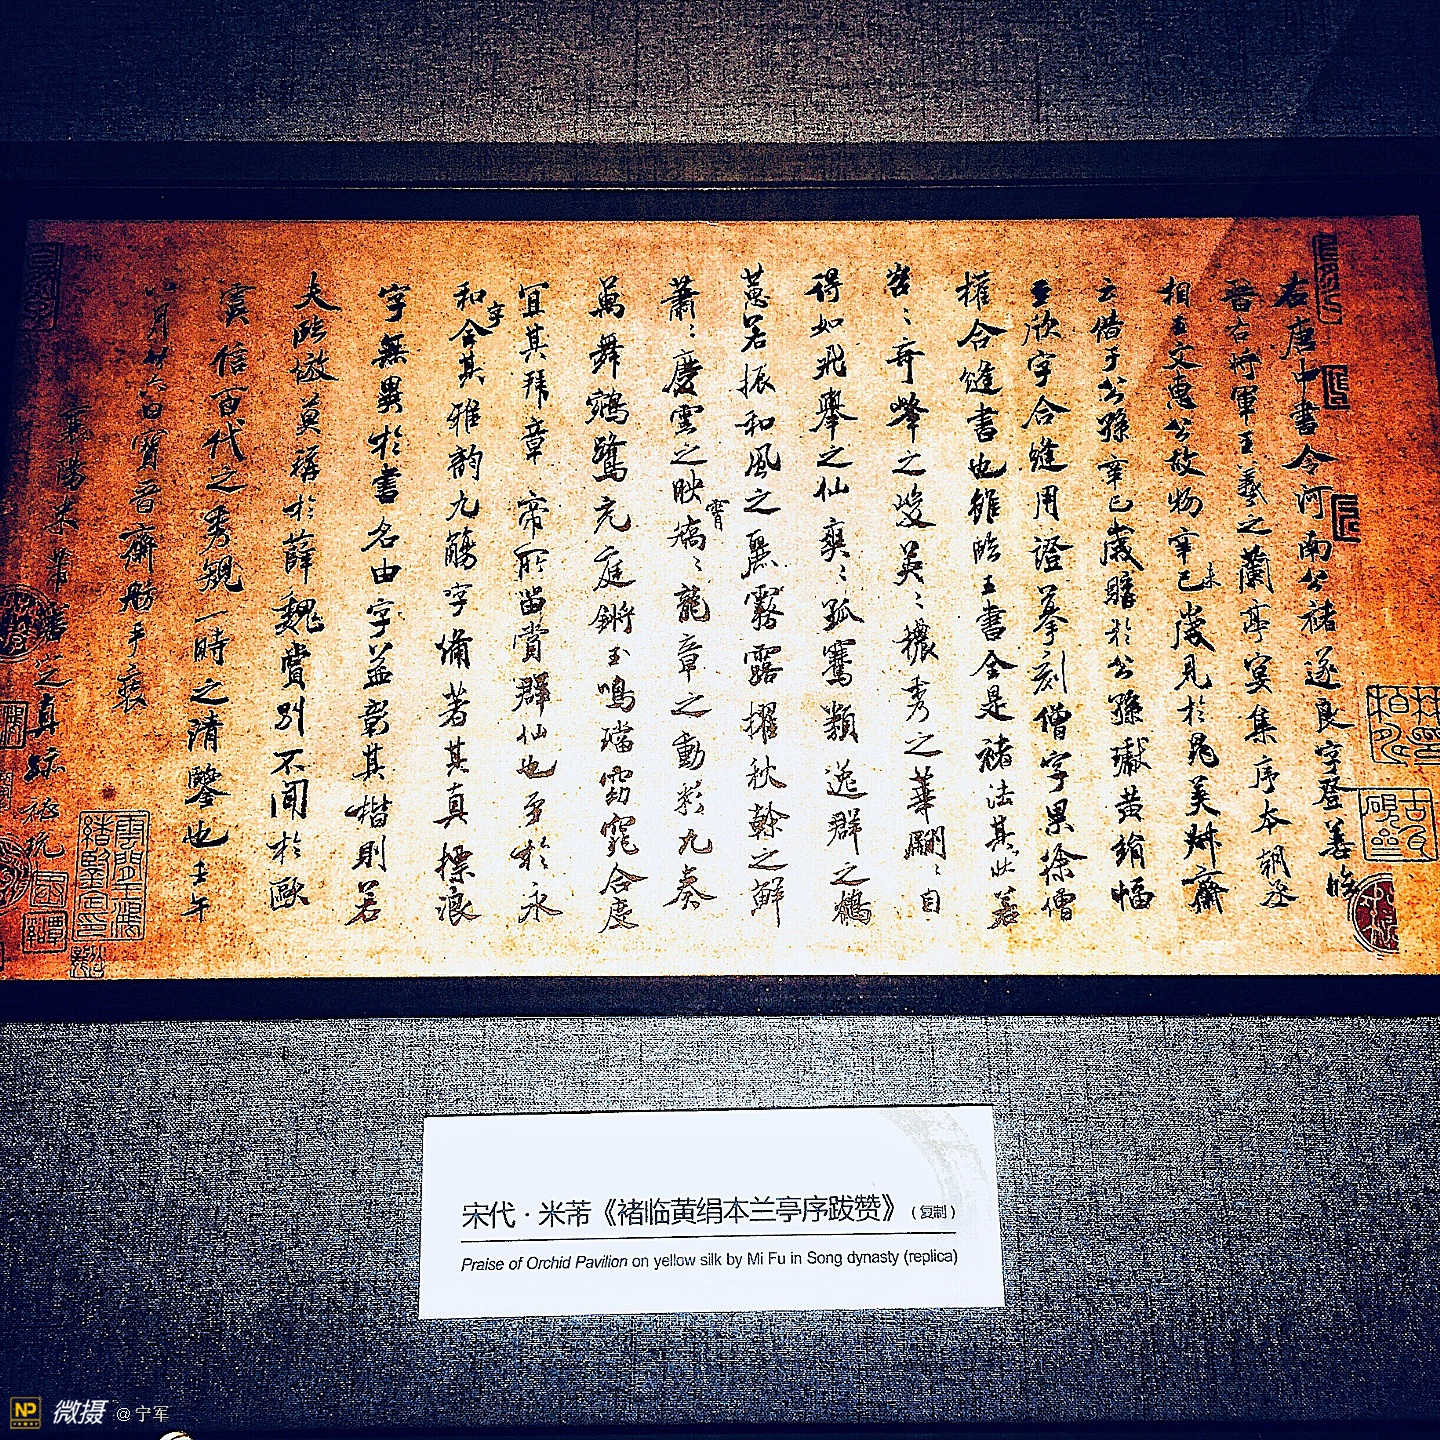 右唐中書令河南公褚遂良字登善臨
晉右將軍王羲之蘭亭宴集序本朝丞
相王文惠公故物辛巳未歲見於晁美叔齋
云借于公孫辛巳歲購於公孫瓛黄絹幅
至欣字合縫用證摹刻僧字果徐僧
權合縫書也雖臨王書全是褚法其狀若
岩〻奇峰之峻英〻穠秀之華翩〻自
得如飛舉之仙爽〻孤騫類逸群之鶴
蕙若振和風之麗霧露擢秋幹之鮮
蕭〻慶雲之映霄矯〻龍章之動彩九奏
萬舞鵷鷺充庭鏘玉鳴璫窈窕合度
宜其拜章帝所留賞群仙也至於永
和字合其雅韵九觴字備著其真摽浪
字無異於書名由字益彰其楷則若
夫臨倣莫稱於薛魏賞别不聞於歐
虞信百代之秀規一時之清鑒也壬午
八月廿六日寶晉齋舫手裝
襄陽米芾審定真跡秘玩
宋代·米芾《褚临黄绢本兰亭序跋赞》（复制）
Praise of Orchid Pavilion on yellow silk by Mi Fu in Song dynasty (replica)
NP 微摄 @宁军